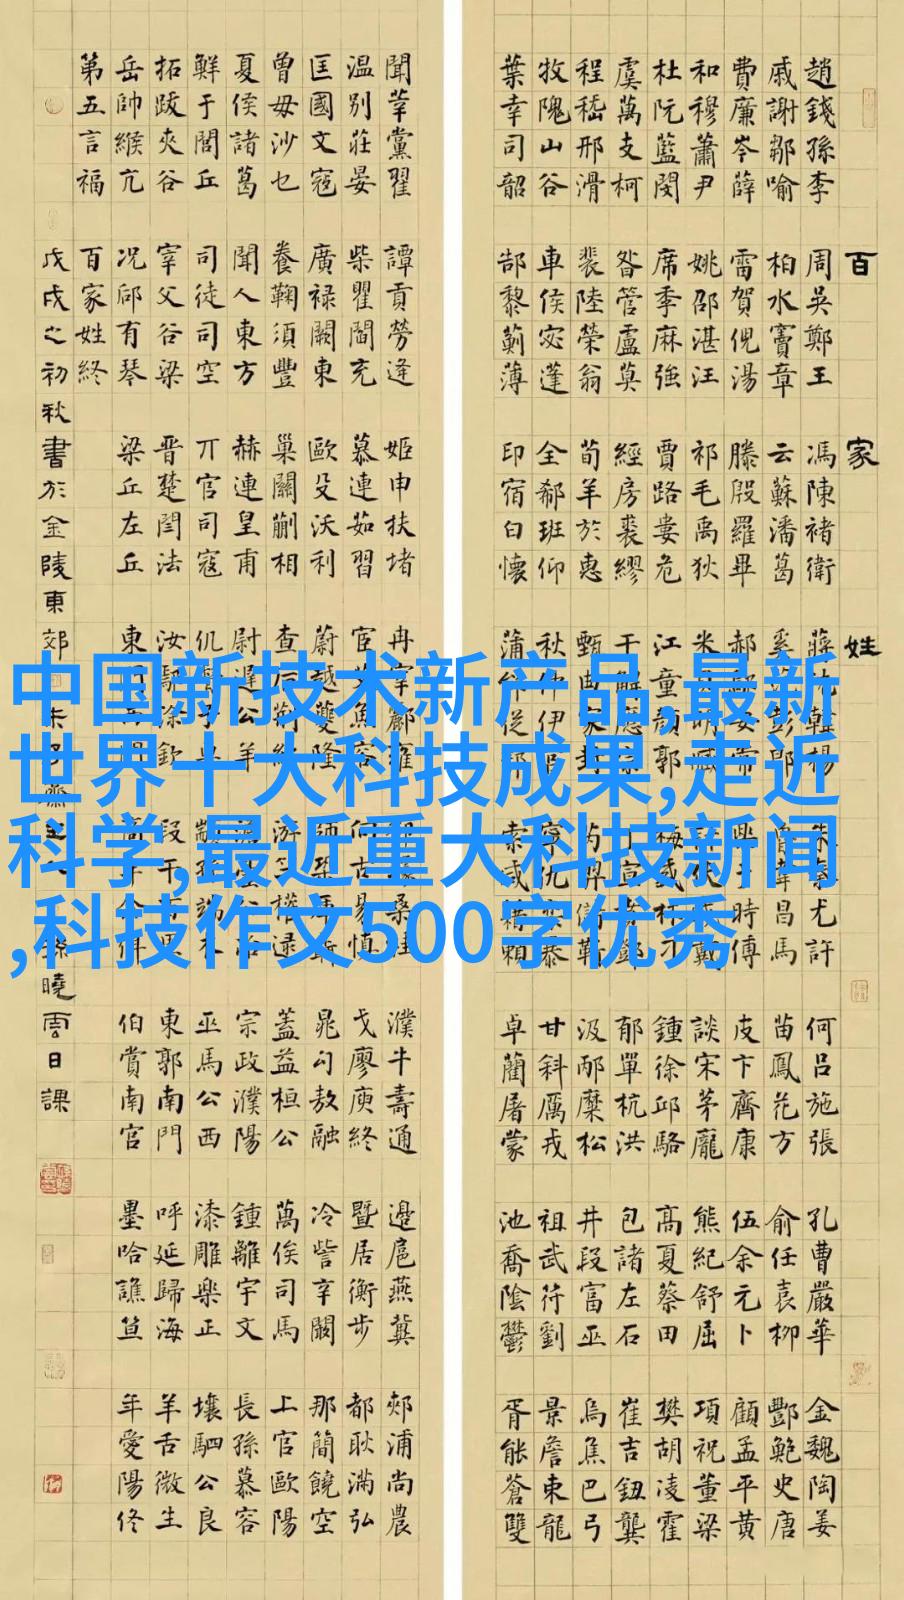 百家姓
趙錢孫李周吳鄭王馮陳褚衛蔣韓楊朱尤許何呂施張孔曹嚴華金魏陶姜
戚謝鄒喻柏水竇章云蘇潘葛奚彭郎魯韋昌馬苗鳳花方俞任袁柳酆鮑史唐
費廉岑薛雷賀倪湯滕殷羅畢郝安常于時傅皮卞齊康伍余元卜顧孟平黃
和穆蕭尹姚邵湛汪祁毛禹狄米明臧戴談宋茅龐熊紀舒屈項祝董梁
杜阮藍閔席季麻強賈路婁危江童顏郭梅盛林刁鍾徐邱駱高夏蔡田樊胡凌霍
虞萬支柯昝管盧莫經房裘繆干解應宣鄧郁單杭洪包諸左石崔吉鈕龔
程嵇邢滑裴陸榮翁荀羊於惠甄曲家封芮羿靳汲邴糜松井段富巫烏焦巴弓
牧隗山谷車侯宓蓬全郗班仰秋仲伊寧仇暴甘斜厲戎祖武符劉景詹束龍
葉幸司韶郜黎薊薄印宿白懷蒲從索咸籍賴卓藺屠蒙池喬陰鬱胥能蒼雙
聞莘黨翟譚貢勞逄姬申扶堵冉宰酈雍桑濮牛壽通邊扈燕冀郟浦尚農
温別莊晏柴瞿閻充慕連茹習宦艾魚容向古易慎戈廖庾終暨居衡步都耿滿弘
匡國文寇廣祿闕東歐殳沃利蔚越夔隆師鞏晁勾敖融冷訾辛闞那簡饒空
曾毋沙乜養鞠須豐巢關蒯相查后荊游竺權逯蓋益桓公萬俟司馬上官歐陽
夏侯諸葛聞人東方赫連皇甫尉遲公羊宗政濮陽鍾離宇文長孫慕容
鮮于閭丘司徒司空丌官司寇仉巫馬公西漆雕樂正壤駟公良
拓跋夾谷宰父谷梁晉楚閆法汝鄢涂欽段干東郭南門呼延歸海羊舌微生
岳帥緱亢況郈有琴梁丘左丘東伯賞南宮墨哈譙笪年愛陽佟
第五言福百家姓終
戊戌之初秋書於金陵東郊曉雲日課
中国新技术新产品,最新
世界十大科技成果,走近
科学,最近重大科技新闻
,科技作文500字优秀